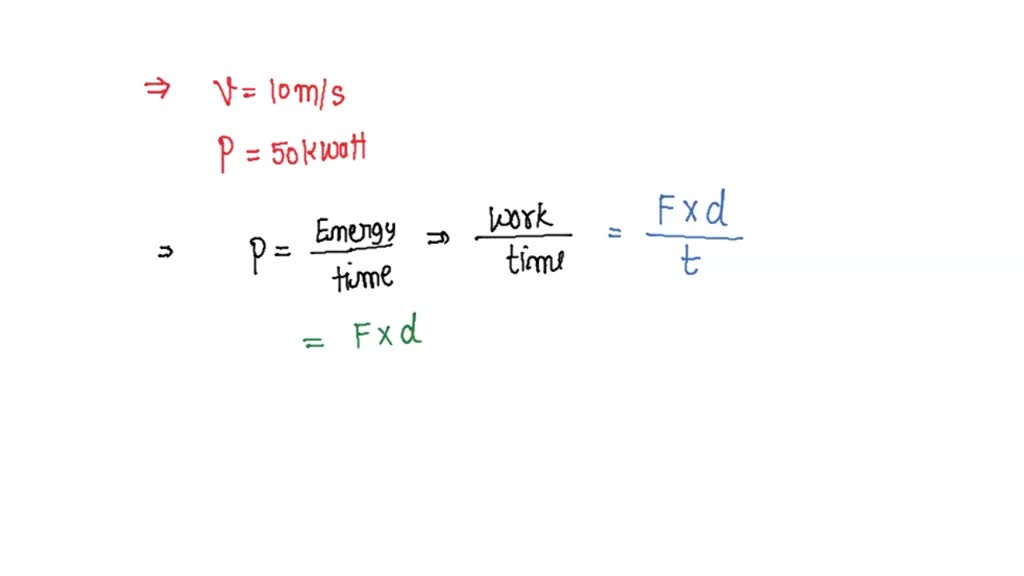 ⇒ V = 10 m/s
P = 50 kwatt
⇒ P = Energy/time ⇒ work/time = F x d/t
= F x d